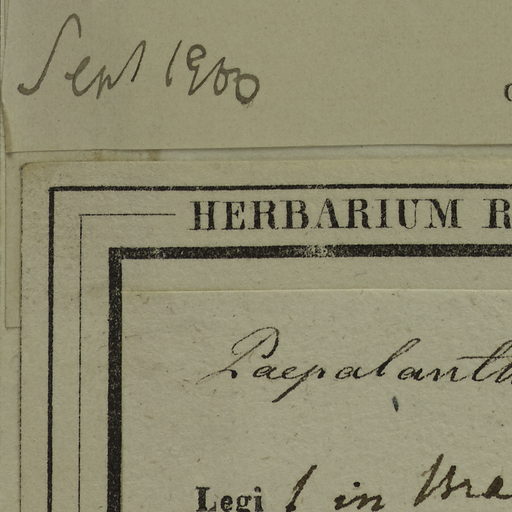 Sept 1900
HERBARIUM R
Paepalanth
Legi in Bra